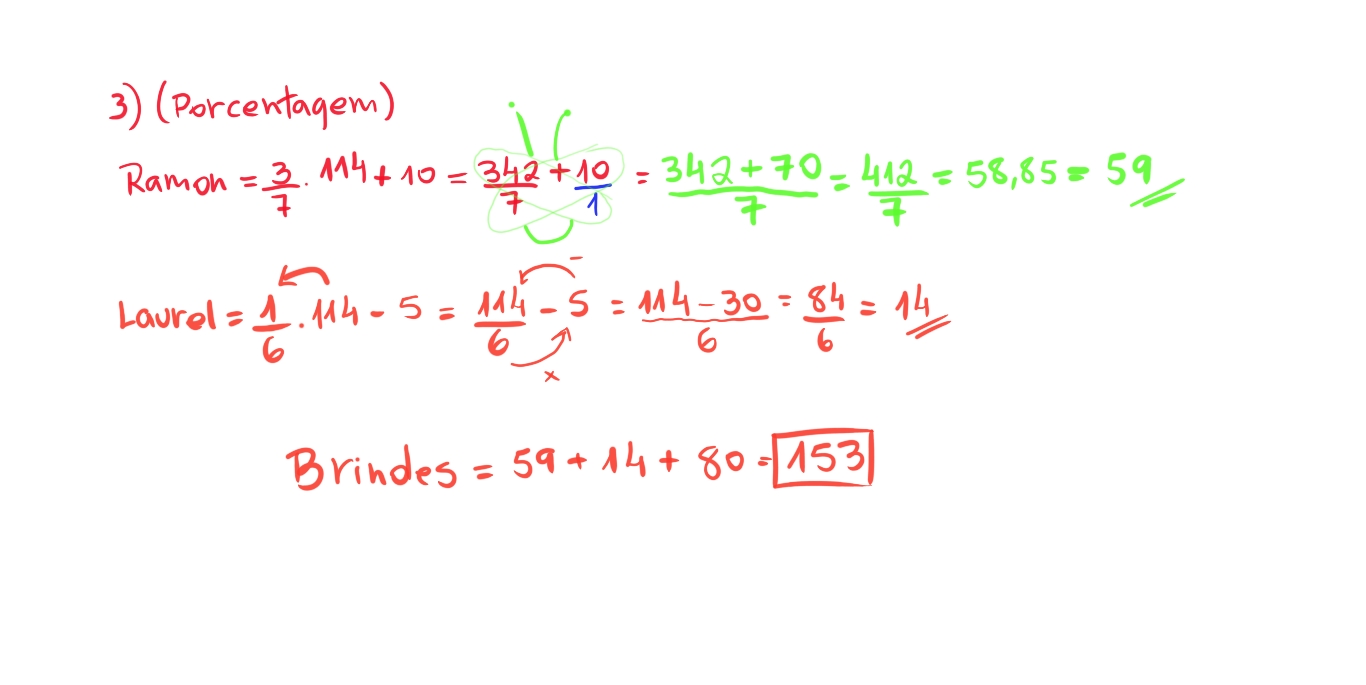 3) (Porcentagem)
Ramon = 3/7 . 114 + 10 = 342/7 + 10/1 = 342 + 70/7 = 412/7 = 58,85 = 59
Laurel = 1/6 . 114 - 5 = 114/6 - 5 = 114 - 30/6 = 84/6 = 14
- x
Brindes = 59 + 14 + 80 = 153